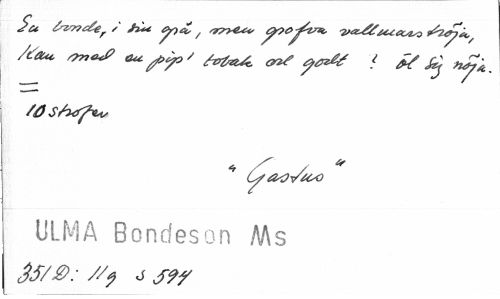 En bonde, i sin grå, men grofva vallmarströja,
Kan med en pip' tobak och godt ? öl sig nöja.
=
10 strofer
"Gastus"
ULMA Bondeson Ms
351 D: 11g s 594